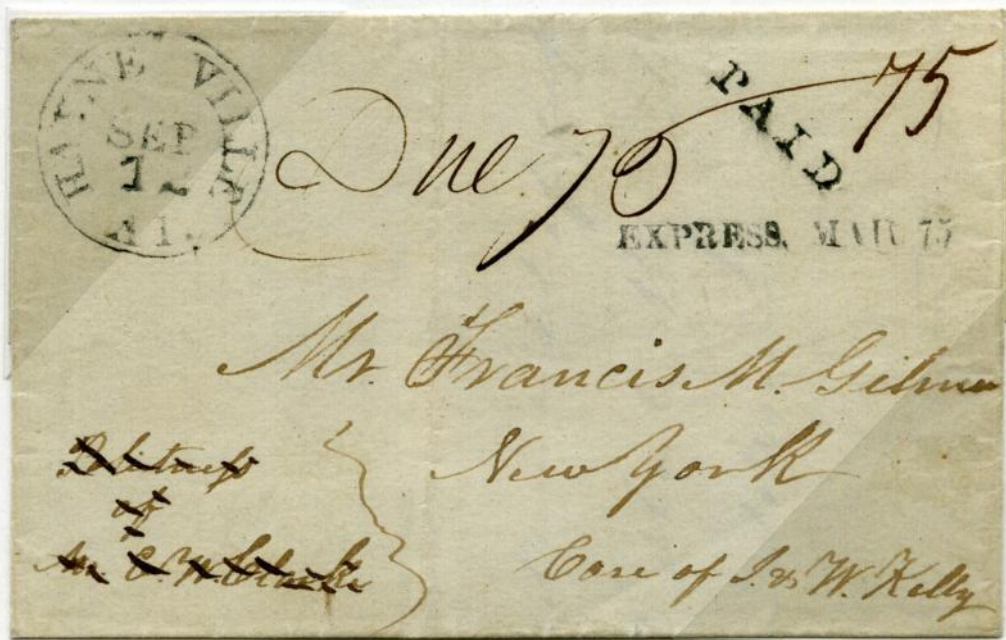 HAYNEVILLE
SEP
12
Al.
Due 75
PAID
75
EXPRESS, MAIL 75
Mr. Francis M. Gilmer
New York
Care of J. & W. Kelly
Politeness
of
Mr C. W.